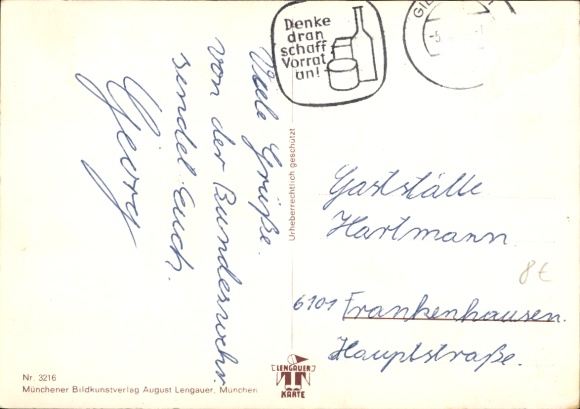 Denke
dran
schaff
Vorrat
an!
Viele Grüße.
von der Bundeswehr
sendet Euch.
Georg
Urheberrechtlich geschützt
Gaststätte
Hartmann
8€
6101 Frankenhausen.
Hauptstraße.
Nr. 3216
Münchener Bildkunstverlag August Lengauer, München
LENGAUER
KARTE